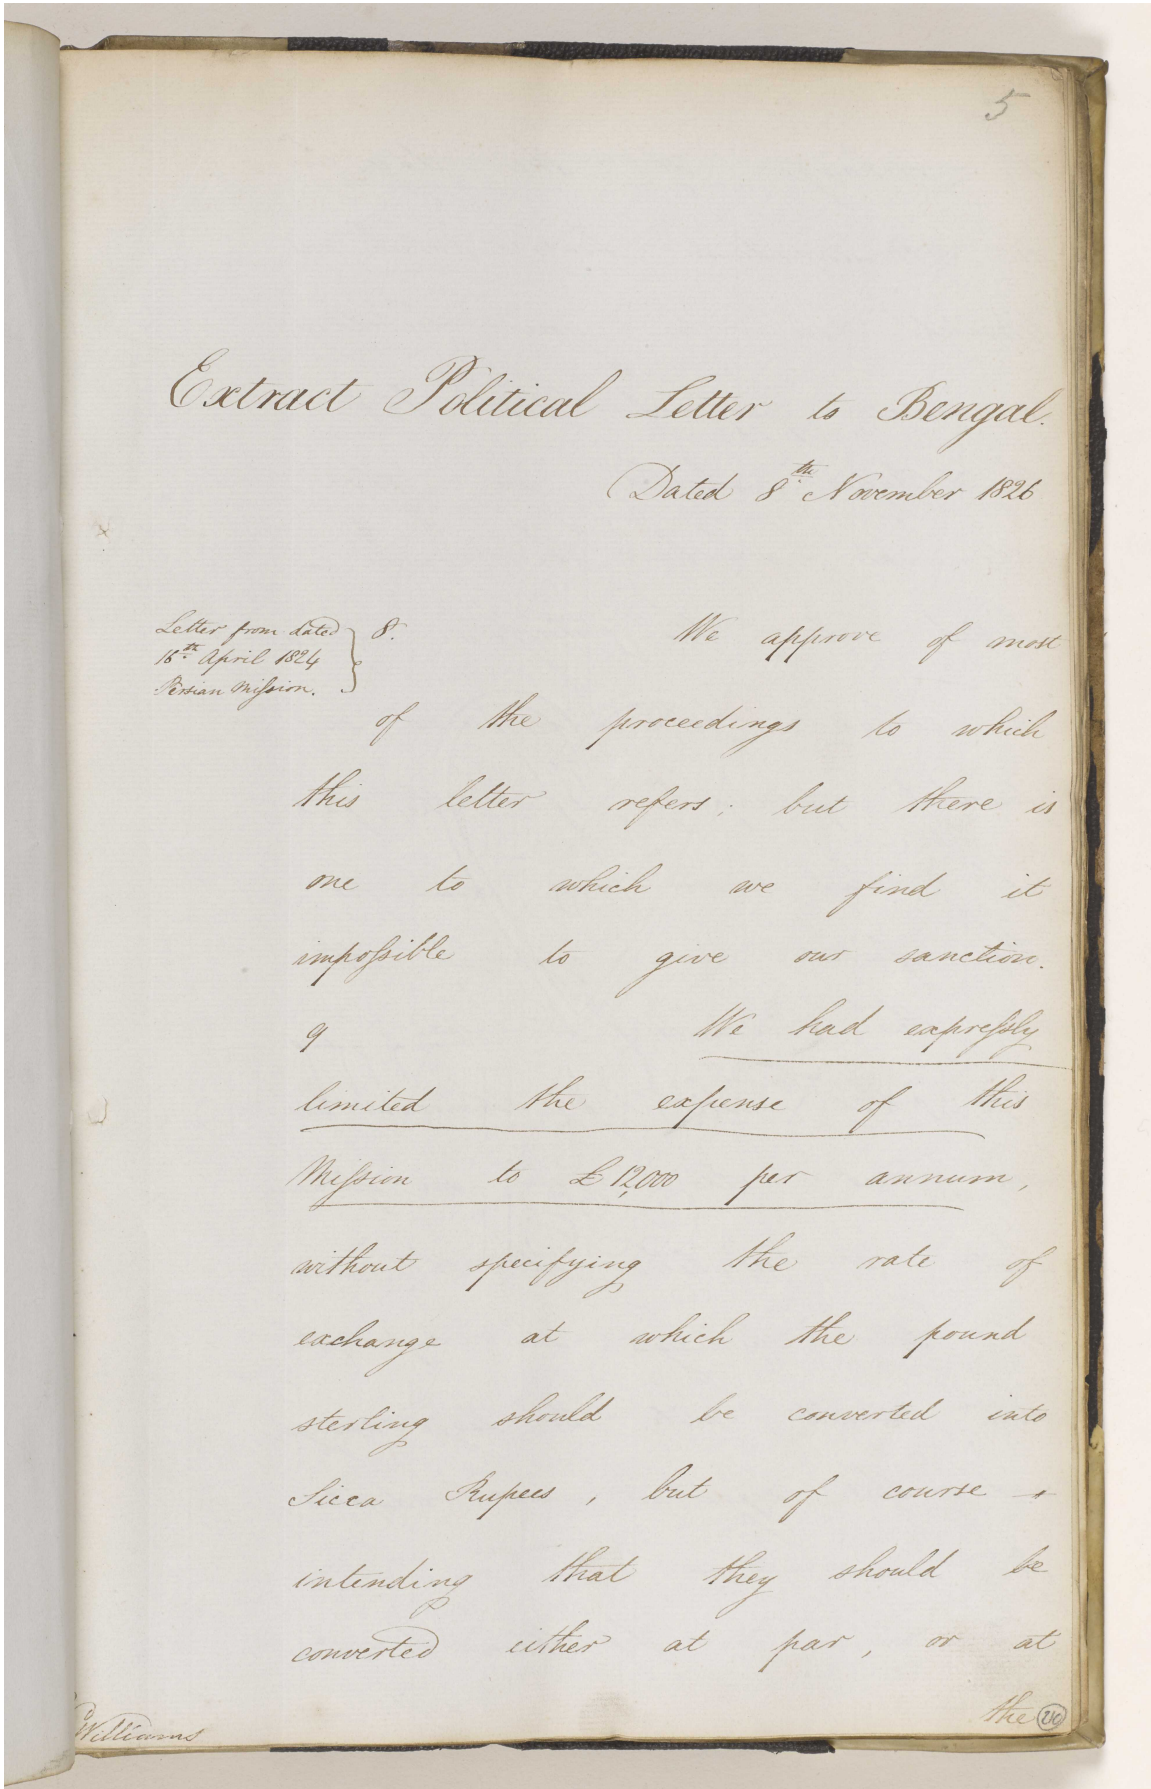 5
Extract Political Letter to Bengal.
Dated 8th November 1826
Letter from dated
16th April 1824
Persian Mission.
8. We approve of most
of the proceedings to which
this letter refers; but there is
one to which we find it
impossible to give our sanction.
9 We had expressly
limited the expense of this
Mission to £12,000 per annum,
without specifying the rate of
exchange at which the pound
sterling should be converted into
Sicca Rupees, but of course
intending that they should be
converted either at par, or at
the
Williams